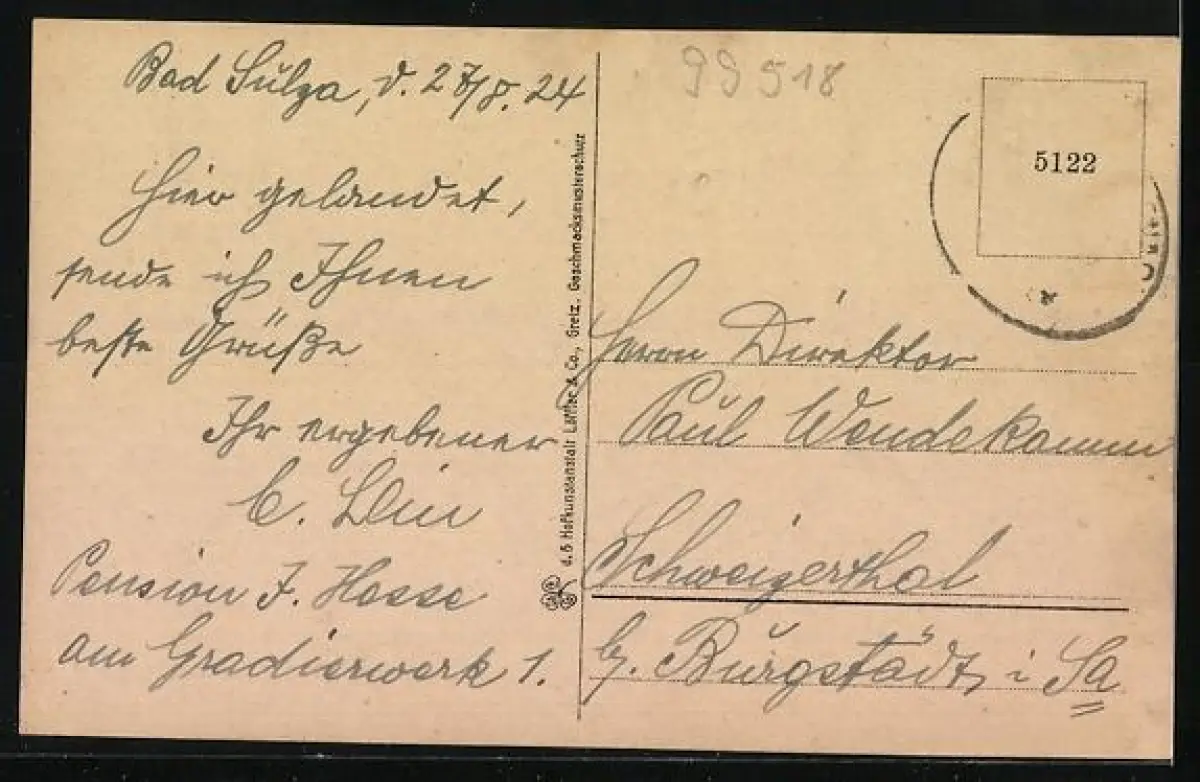 Bad Sulza, d. 27/8. 24
Hier gelandet,
sende ich Ihnen
beste Grüße
Ihr ergebener
C.
Pension J. Hesse
am Gradierwerk 1.
4. 6 Hofkunstanstalt Löffler & Co., Greiz. Geschmacksmusterschutz
99518
5122
Herrn Direktor
Paul Wendekamm
Schweizerthal
b. Burgstädt i Sa